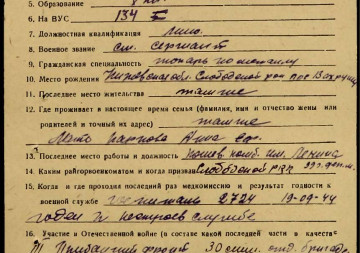 5. Образование 8 кл.
6. На ВУС 134
7. Должностная квалификация мин.
8. Военное звание ст. сержант
9. Гражданская специальность токарь по металлу
10. Место рождения Кировская обл. Слободской р-он пос Вахруши
11. Последнее место жительства там же
12. Где проживает в настоящее время семья (фамилия, имя и отчество жены или
родителя и точный их адрес) там же
Мать Анна Еф.
13. Последнее место работы и должность комб. им. Ленина
14. Каким райгорвоенкоматом и когда призван Слободской РВК
15. Когда и где проходил последний раз медкомиссию и результат годности к
военной службе 2724 19-09-44
годен к строев службе
16. Участие в Отечественной войне (в составе какой последней части в качестве
III Прибалт фронт 30 отд. бригада